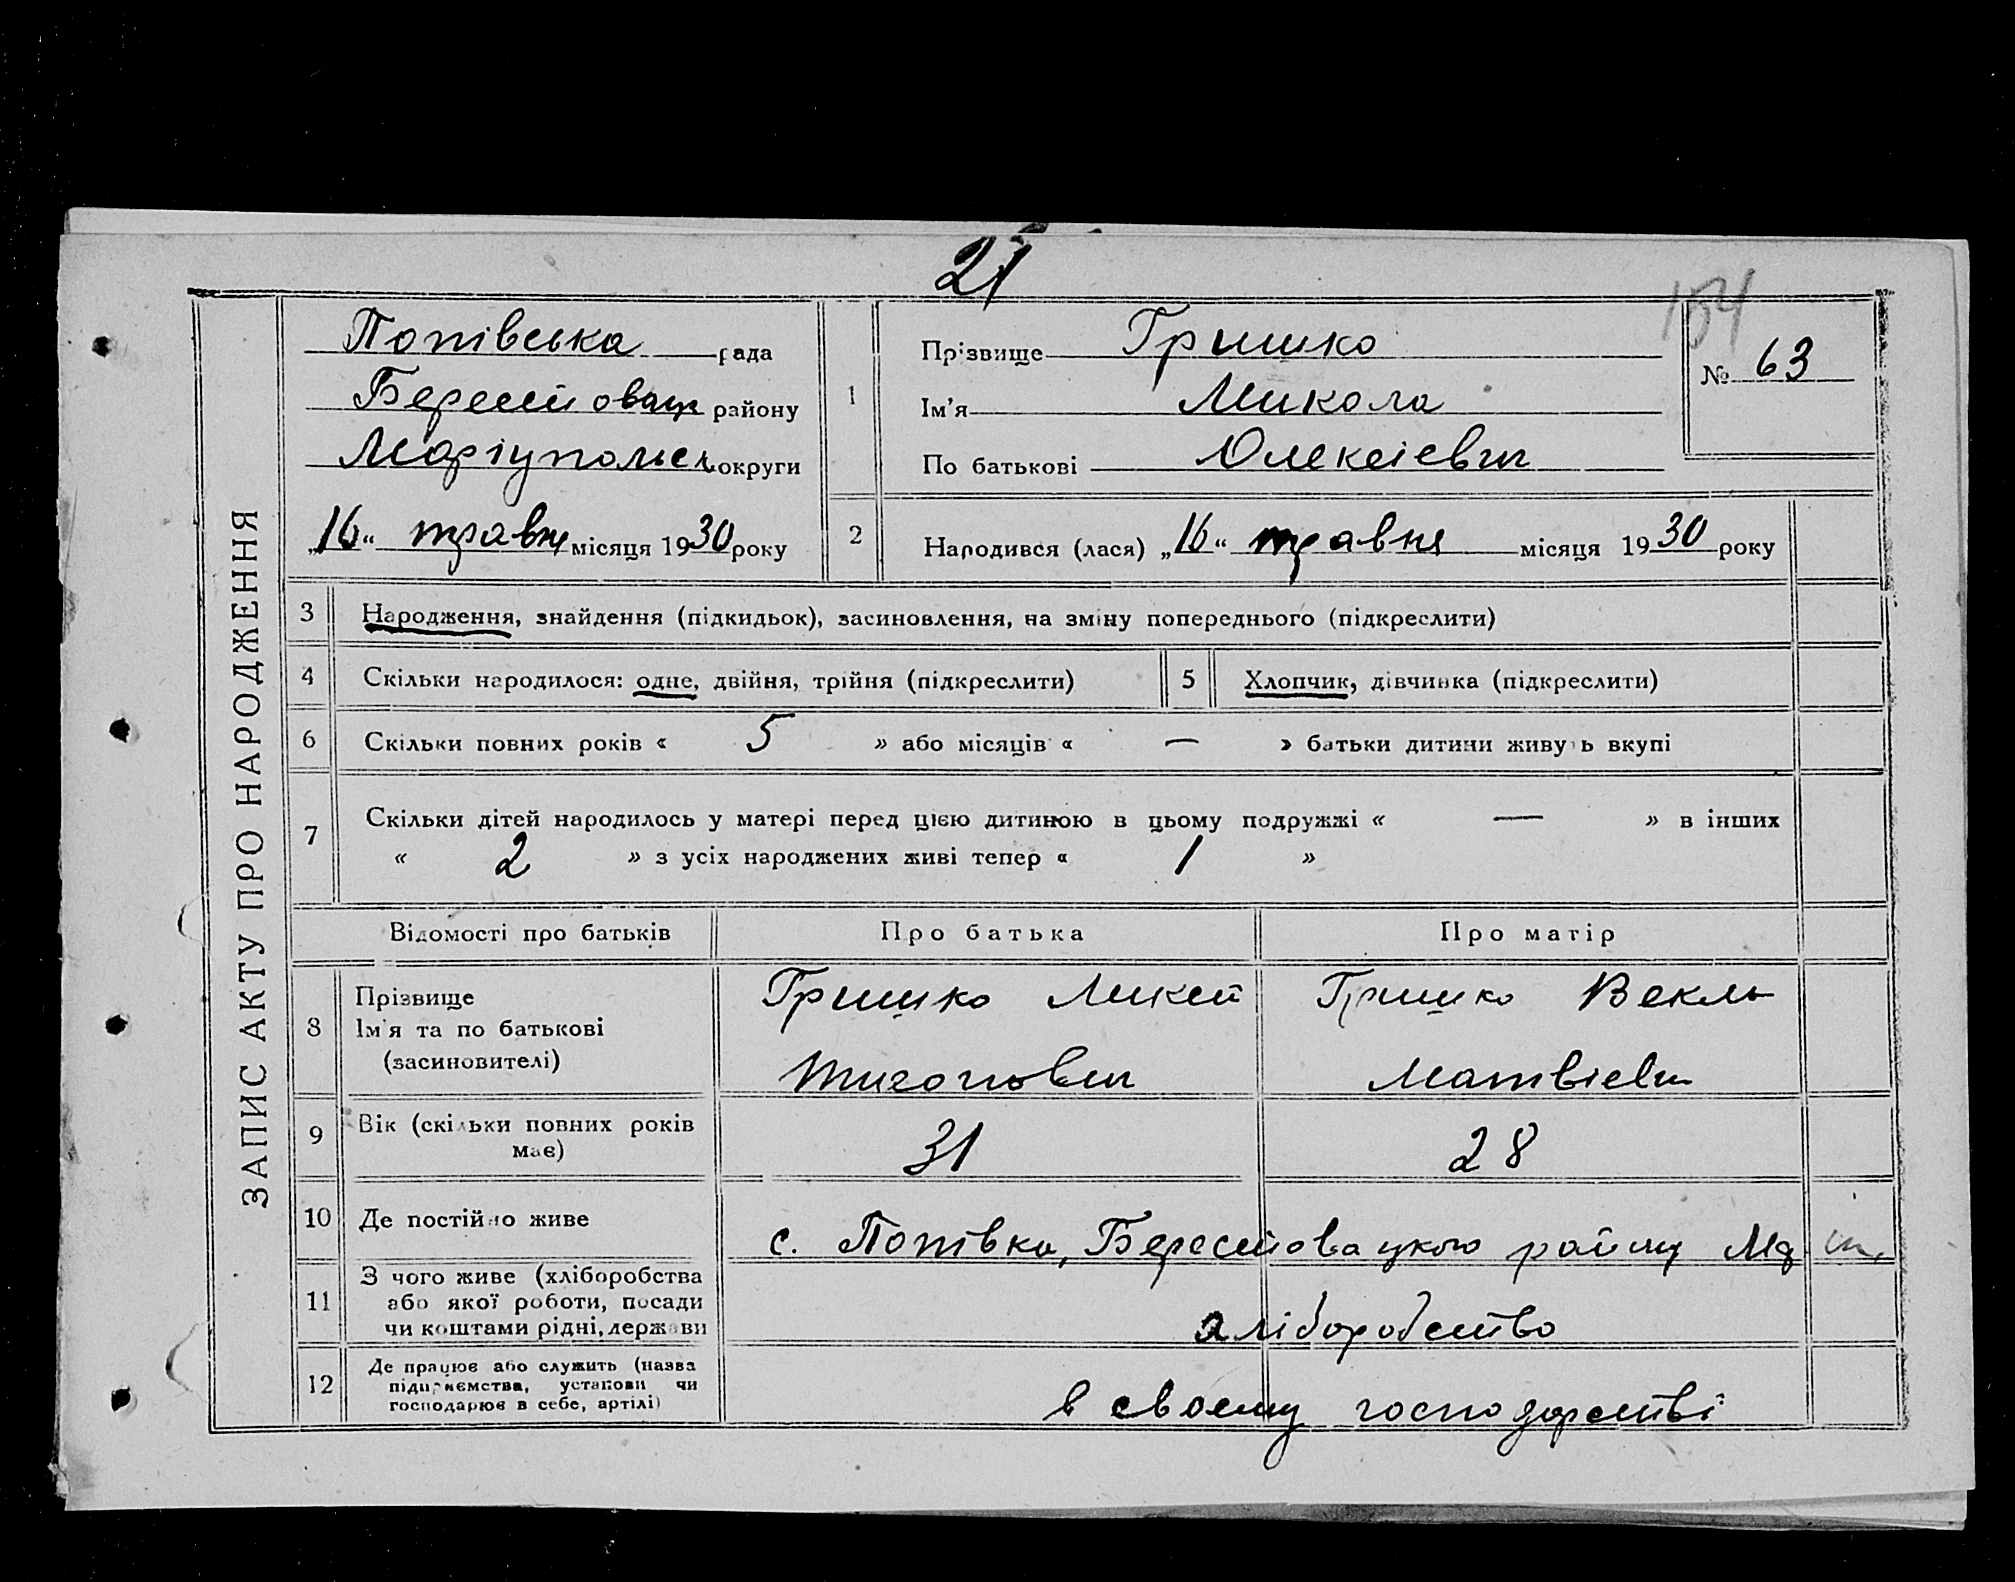 21
154
ЗАПИС АКТУ ПРО НАРОДЖЕННЯ
Попівська рада
Берестовац району
Маріупольськ округи
„16“ травня місяця 1930 року
1
Прізвище Гришко
Ім'я Микола
По батькові Олексієвич
№ 63
2
Народився (лася) „16“ травня місяця 1930 року
3 Народження, знайдення (підкидьок), засиновлення, на зміну попереднього (підкреслити)
4 Скільки народилося: одне, двійня, трійня (підкреслити) 5 Хлопчик, дівчинка (підкреслити)
6 Скільки повних років « 5 » або місяців « — » батьки дитини живуть вкупі
7 Скільки дітей народилось у матері перед цією дитиною в цьому подружжі « — » в інших
« 2 » з усіх народжених живі тепер « 1 »
Відомості про батьків Про батька Про матір
8 Прізвище
Ім'я та по батькові
(засиновителі)
Гришко
Гришко Векль
Матвієвн
9 Вік (скільки повних років
має)
31 28
10 Де постійно живе с. Попівка, Берестовацького району
11 З чого живе (хліборобства
або якої роботи, посади
чи коштами рідні, держави
хліборобство
12 Де працює або служить (назва
підприємства, установи чи
господарює в себе, артілі)
в своєму господарстві